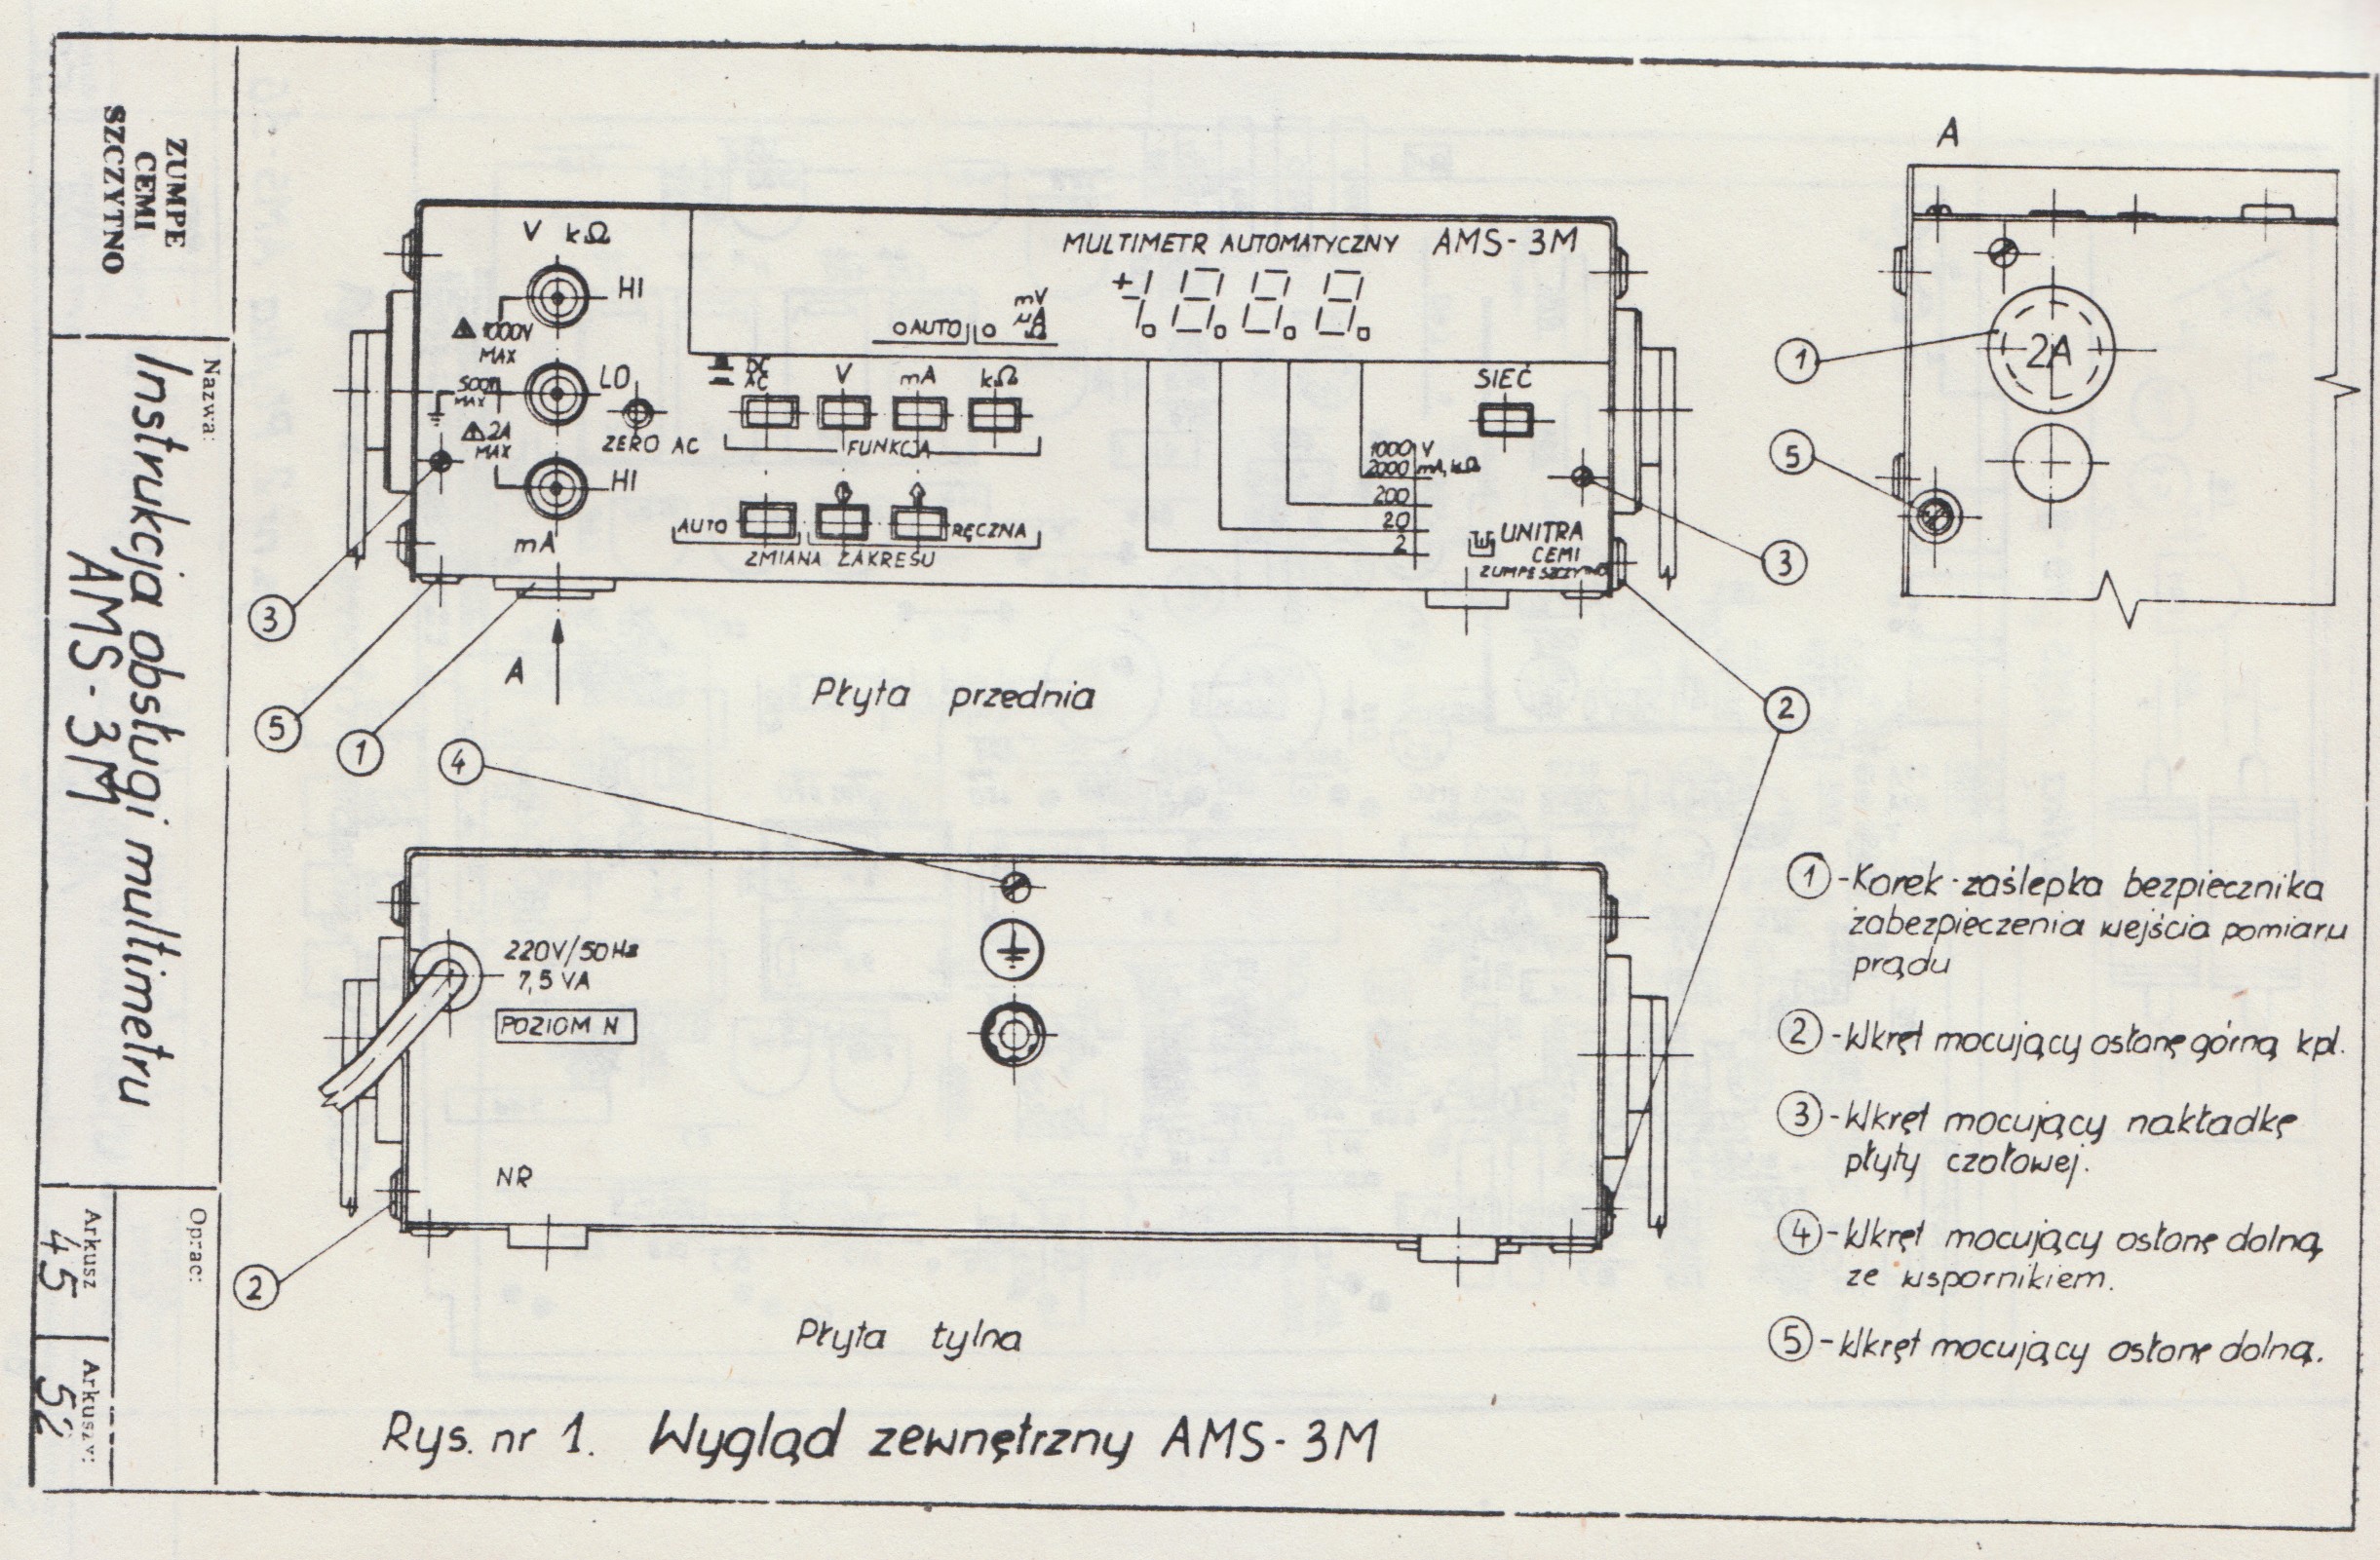 ZUMPE
CEMI
SZCZYTNO
Nazwa:
Instrukcja obsługi multimetru
AMS-3M
Oprac:
Arkusz
45
Arkuszy:
52
V kΩ
HI
⚠ 1000V
MAX
LO
500V
MAX
⚠ 2A
MAX
ZERO AC
HI
mA
MULTIMETR AUTOMATYCZNY AMS-3M
AUTO
mV
μA
Ω
+1.8.8.8.
DC
AC
V
mA
kΩ
FUNKCJA
AUTO
RĘCZNA
ZMIANA ZAKRESU
SIEĆ
1000 V
2000 mA, kΩ
200
20
2
UNITRA
CEMI
ZUMPE SZCZYTNO
3
5
1
A
Płyta przednia
3
2
A
1
2A
5
4
220V/50Hz
7,5 VA
POZIOM N
NR
2
Płyta tylna
1 - Korek-zaślepka bezpiecznika
zabezpieczenia wejścia pomiaru
prądu
2 - Wkręt mocujący osłonę górną kpl.
3 - Wkręt mocujący nakładkę
płyty czołowej.
4 - Wkręt mocujący osłonę dolną
ze wspornikiem.
5 - Wkręt mocujący osłonę dolną.
Rys. nr 1. Wygląd zewnętrzny AMS-3M